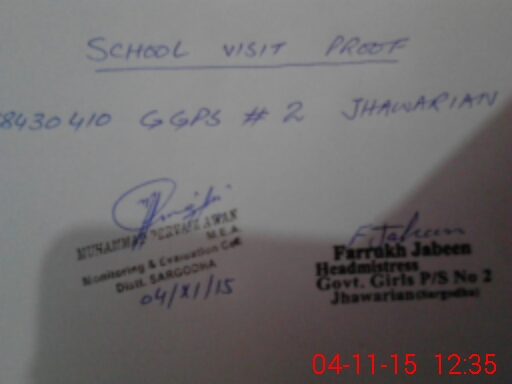 SCHOOL VISIT PROOF
8430410 GGPS # 2 JHAWARIAN
MUHAMMAD PERVAIZ AWAN
M.E.A
Monitoring & Evaluation Cell
Distt. SARGODHA
04/XI/15
F.Jabeen
Farrukh Jabeen
Headmistress
Govt. Girls P/S No 2
Jhawarian(Sargodha)
04-11-15 12:35